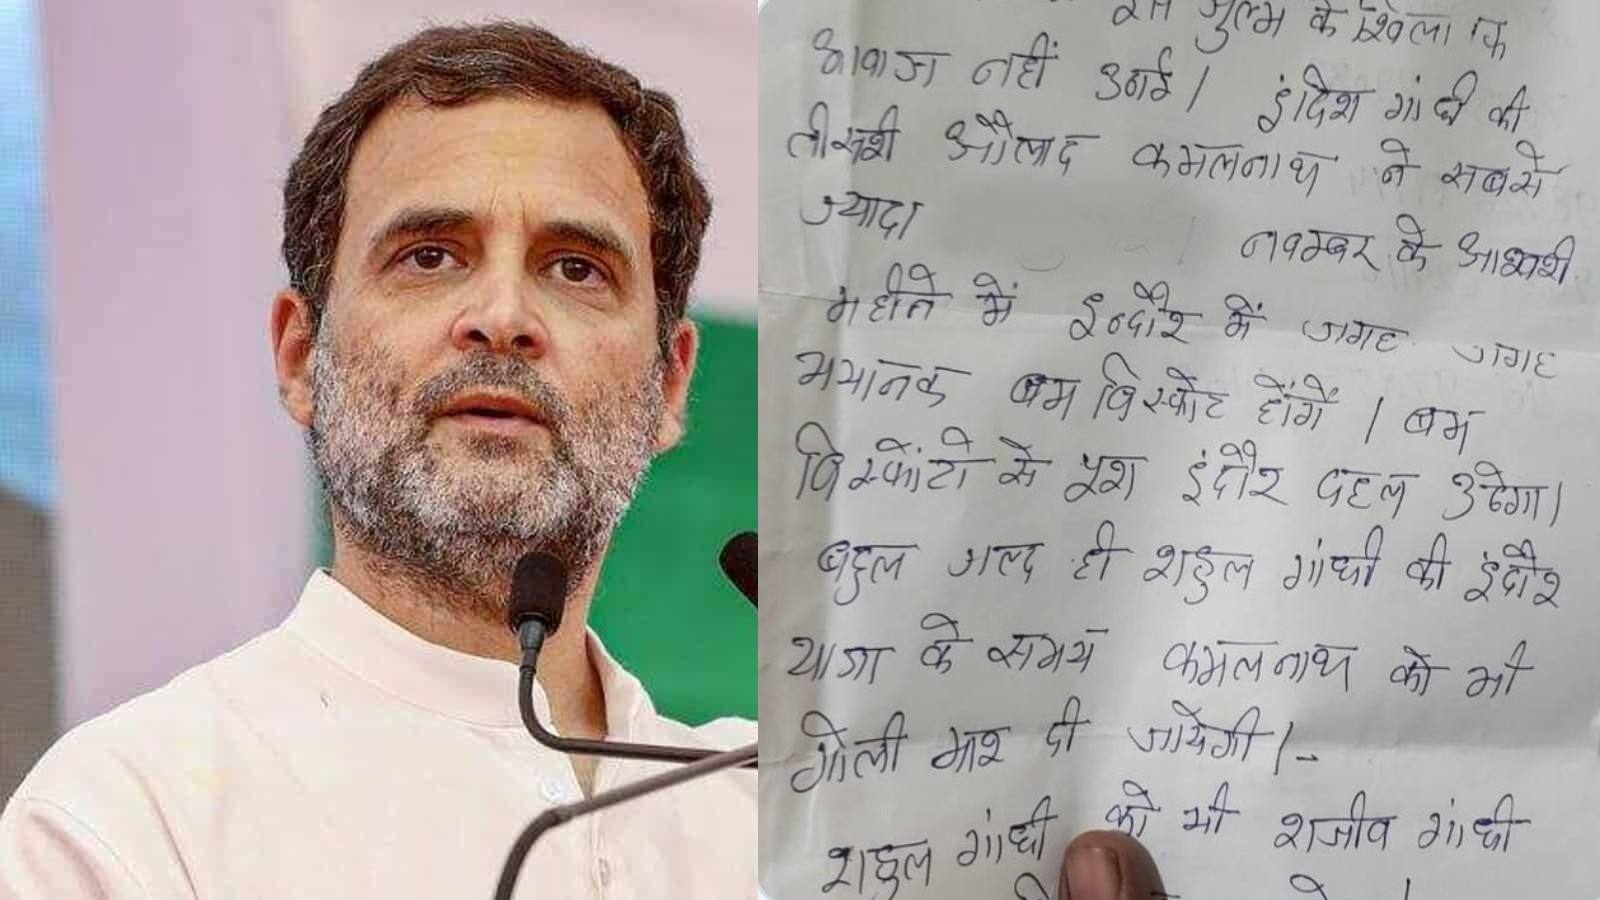 जुल्म के खिलाफ
आवाज नहीं उठाई। इंदिरा गांधी की
तीसरी औलाद कमलनाथ ने सबसे
ज्यादा
नवम्बर के आखरी
महीने में इन्दौर में जगह जगह
भयानक बम विस्फोट होंगें। बम
विस्फोंटो से पूरा इंदौर दहल उठेगा।
बहुत जल्द ही राहुल गांधी की इंदौर
यात्रा के समय कमलनाथ को भी
गोली मार दी जायेगी।-
राहुल गांधी को भी राजीव गांधी